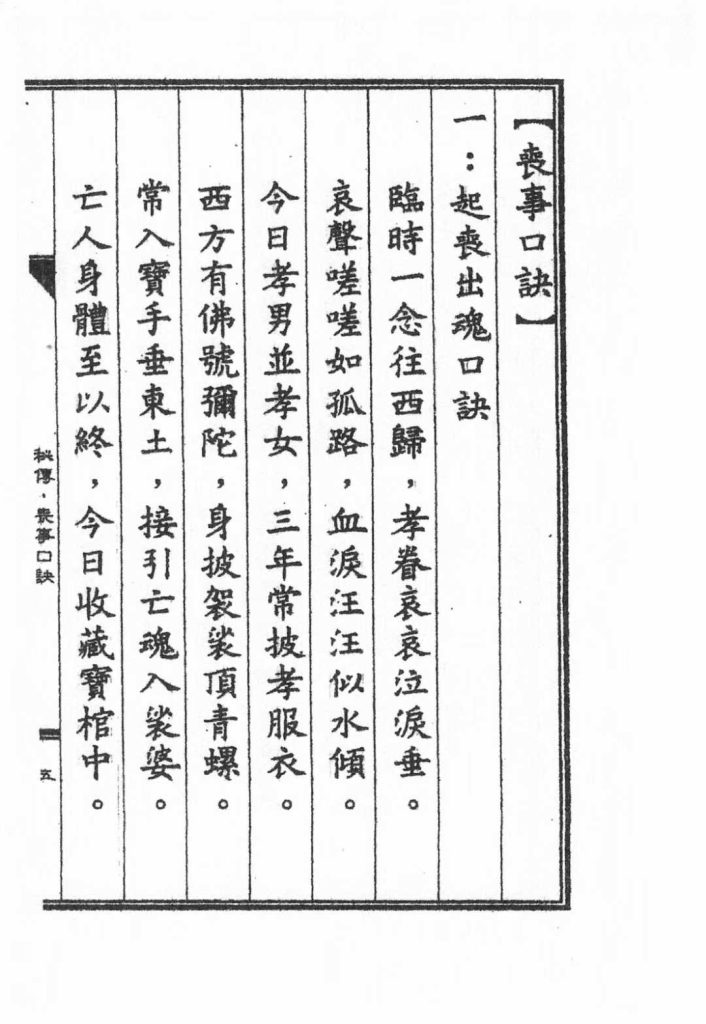 【喪事口訣】
一：起喪出魂口訣
臨時一念往西歸，孝眷哀哀泣淚垂。
哀聲嗟嗟如孤路，血淚汪汪似水傾。
今日孝男並孝女，三年常披孝服衣。
西方有佛號彌陀，身披袈裟頂青螺。
常入寶手垂東土，接引亡魂入裟婆。
亡人身體至以終，今日收藏寶棺中。
秘傳．喪事口訣
五